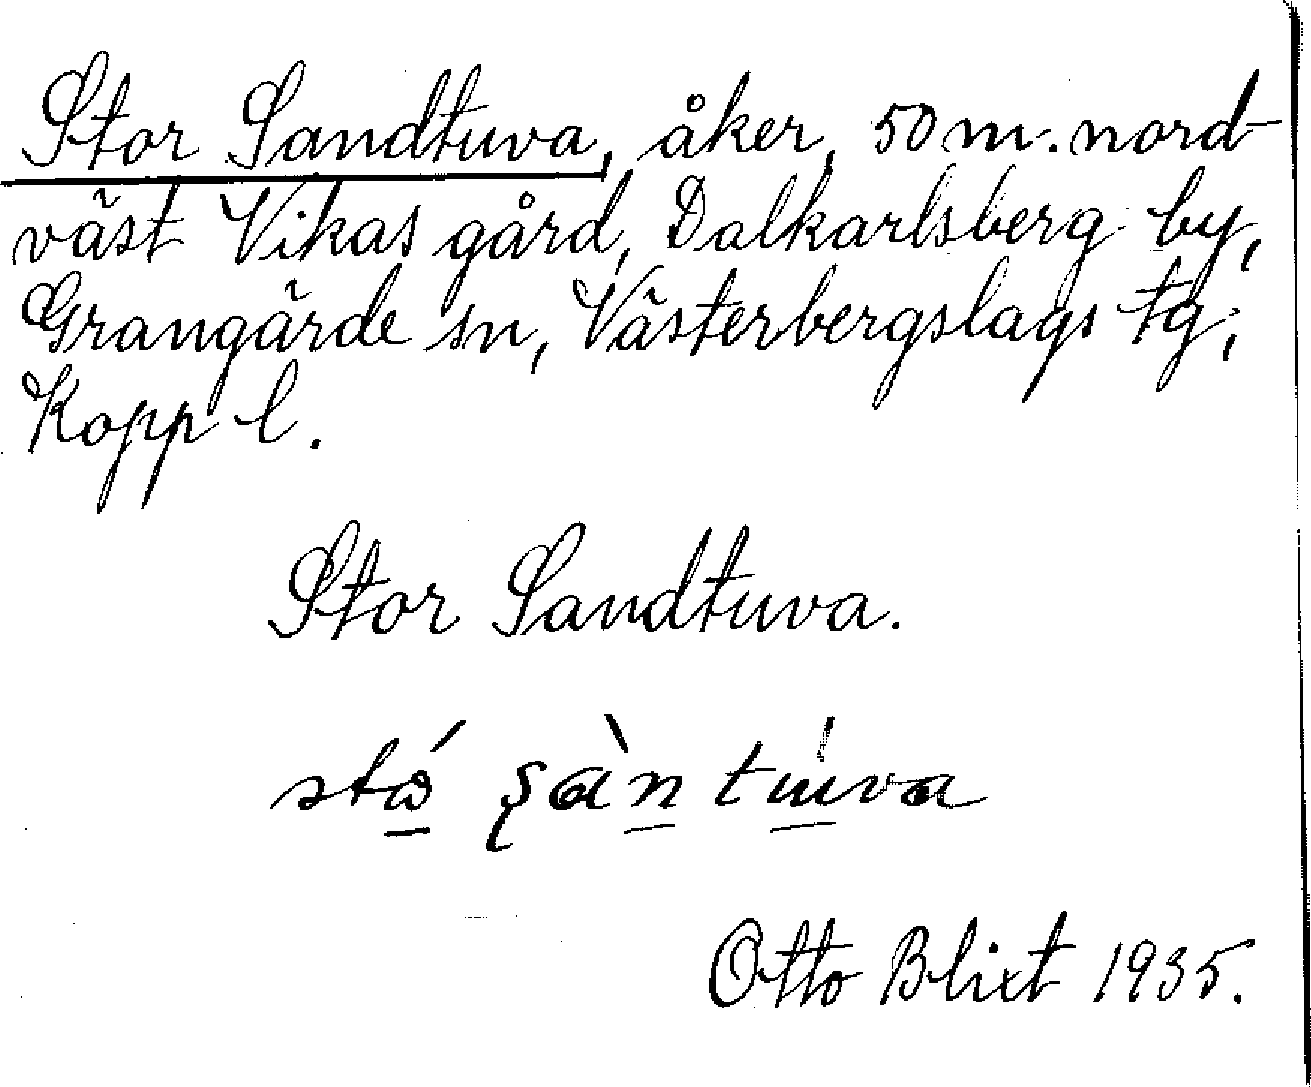 Stor Sandtuva, åker, 50 m. nord
väst Vikas gård, Dalkarlsberg by,
Grangärde sn, Västerbergslags tg,
Kopp l.
Stor Sandtuva.
Otto Blixt 1935.